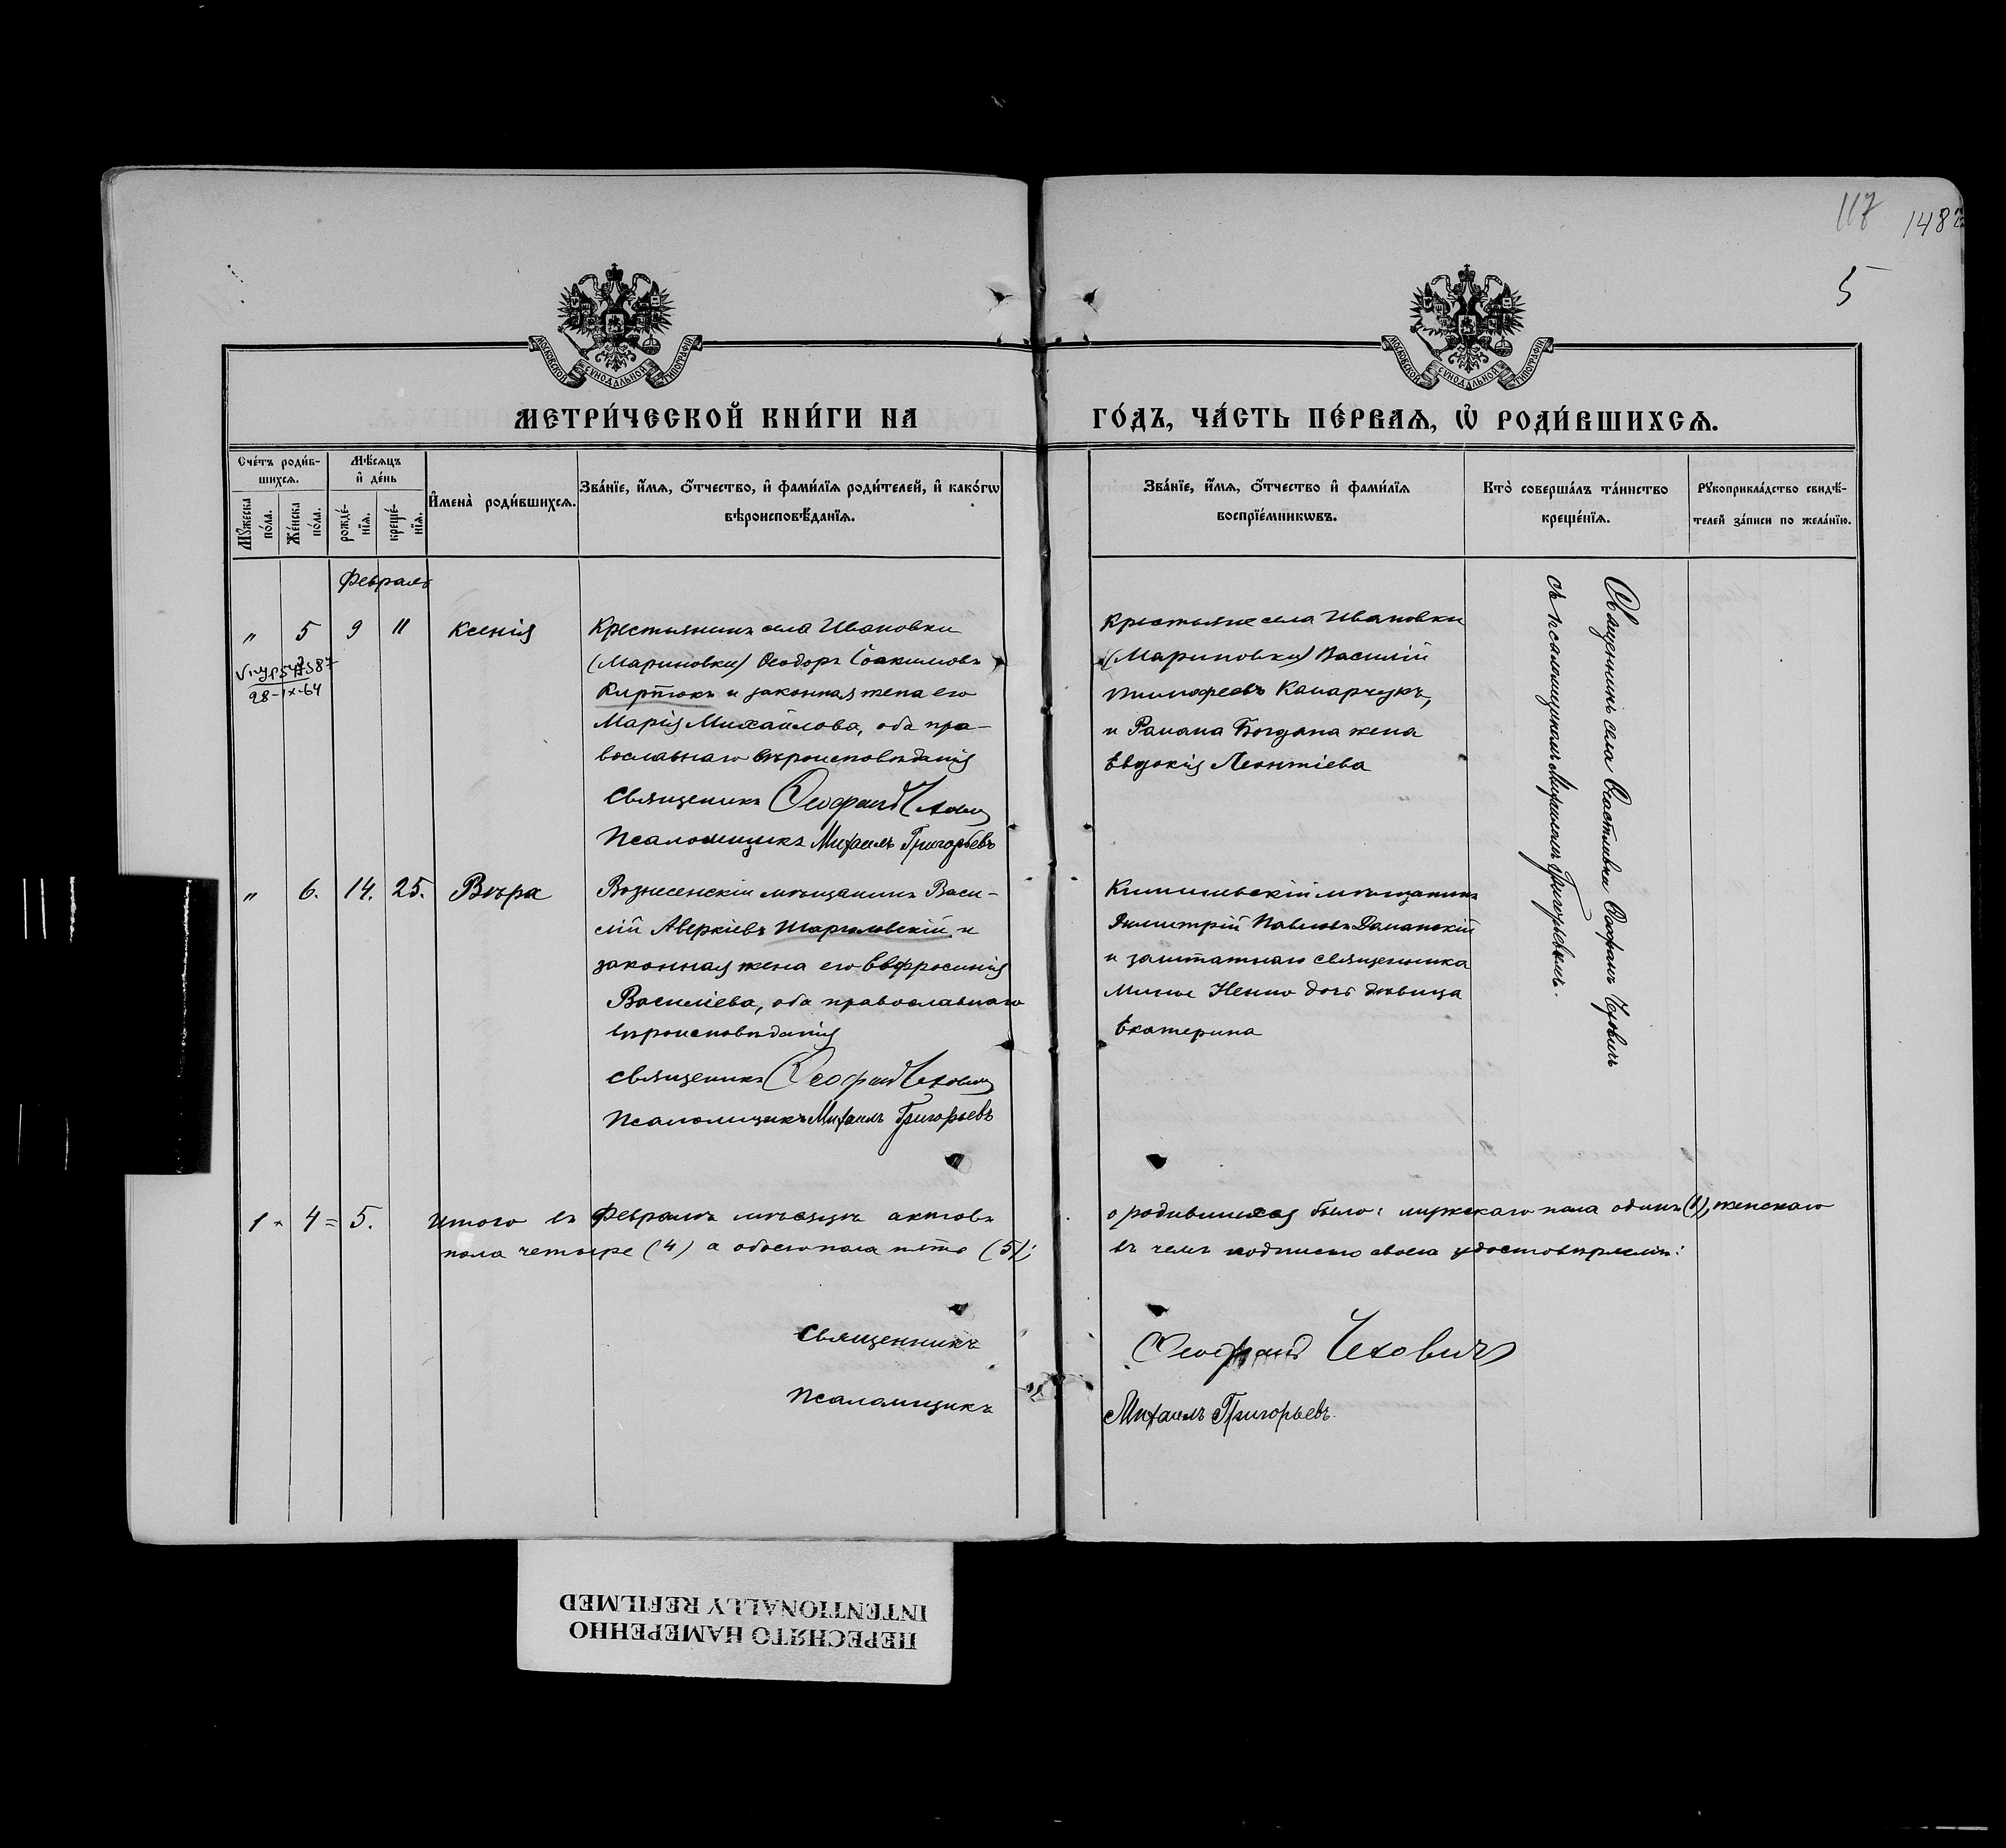 117 148
5
МОСКОВСКОЙ СУНОДАЛЬНОЙ ТИПОГРАФІИ
МОСКОВСКОЙ СУНОДАЛЬНОЙ ТИПОГРАФІИ
МЕТРИ́ЧЕСКОЙ КНИ́ГИ НА ГО́ДЪ, ЧА́СТЬ ПЕ́РВАѦ, Ѡ҆ РОДИ́ВШИХСѦ.
Сче́тъ роди́в-
шихсѧ.
Мꙋ́жеска
по́ла.
Же́нска
по́ла.
Мѣ́сѧцъ
и҆ де́нь
рожде́-
нїѧ.
креще́-
нїѧ.
И҆мена̀ роди́вшихсѧ.
Зва́нїе, и҆́мѧ, ѻ҆́тчество, и҆ фами́лїѧ роди́телей, и҆ како́гѡ
вѣроисповѣ́данїѧ.
Зва́нїе, и҆́мѧ, ѻ҆́тчество и҆ фами́лїѧ
воспрїе́мникѡвъ.
Кто̀ соверша́лъ та́инство
креще́нїѧ.
Рꙋкоприкла́дство свидѣ́-
телей за́писи по жела́нїю.
Февраль
" 5 9 11 Ксенія
28-IX-64
Крестьянинъ села Ивановки
(Мариновки) Ѳеодоръ Іоакимовъ
и законная жена его
Марія Михайлова, оба пра-
вославнаго вѣроисповѣданія
Священникъ Ѳеофанъ Чехович
Псаломщикъ Михаилъ Григорьевъ
Крестьяне села Ивановки
(Мариновки) Василій
Тимофеевъ Капарчукъ,
и Романа Богдана жена
Евдокія Леонтіева
Священникъ села Счастливки Ѳеофанъ Чеховичъ
съ псаломщикомъ Михаиломъ Григорьевымъ.
" 6. 14. 25. Вѣра
Вознесенскій мѣщанинъ Васи-
лій Аверкіевъ Шаргаловскій и
законная жена его Евфросинія
Василіева, оба православнаго
вѣроисповѣданія
Священникъ Ѳеофанъ Чехович
Псаломщикъ Михаилъ Григорьевъ
мѣщанинъ
Димитрій Павловъ
и заштатнаго священника
дочь дѣвица
Екатерина
1 + 4 = 5. Итого въ Февралѣ мѣсяцѣ актовъ о родившихся было: мужскаго пола одинъ (1), женскаго
пола четыре (4) а обоего пола пять (5); въ чемъ подписью своею удостовѣряемъ:
Священникъ Ѳеофанъ Чеховичъ
Псаломщикъ Михаилъ Григорьевъ.
ПЕРЕСНЯТО НАМЕРЕННО
INTENTIONALLY REFILMED